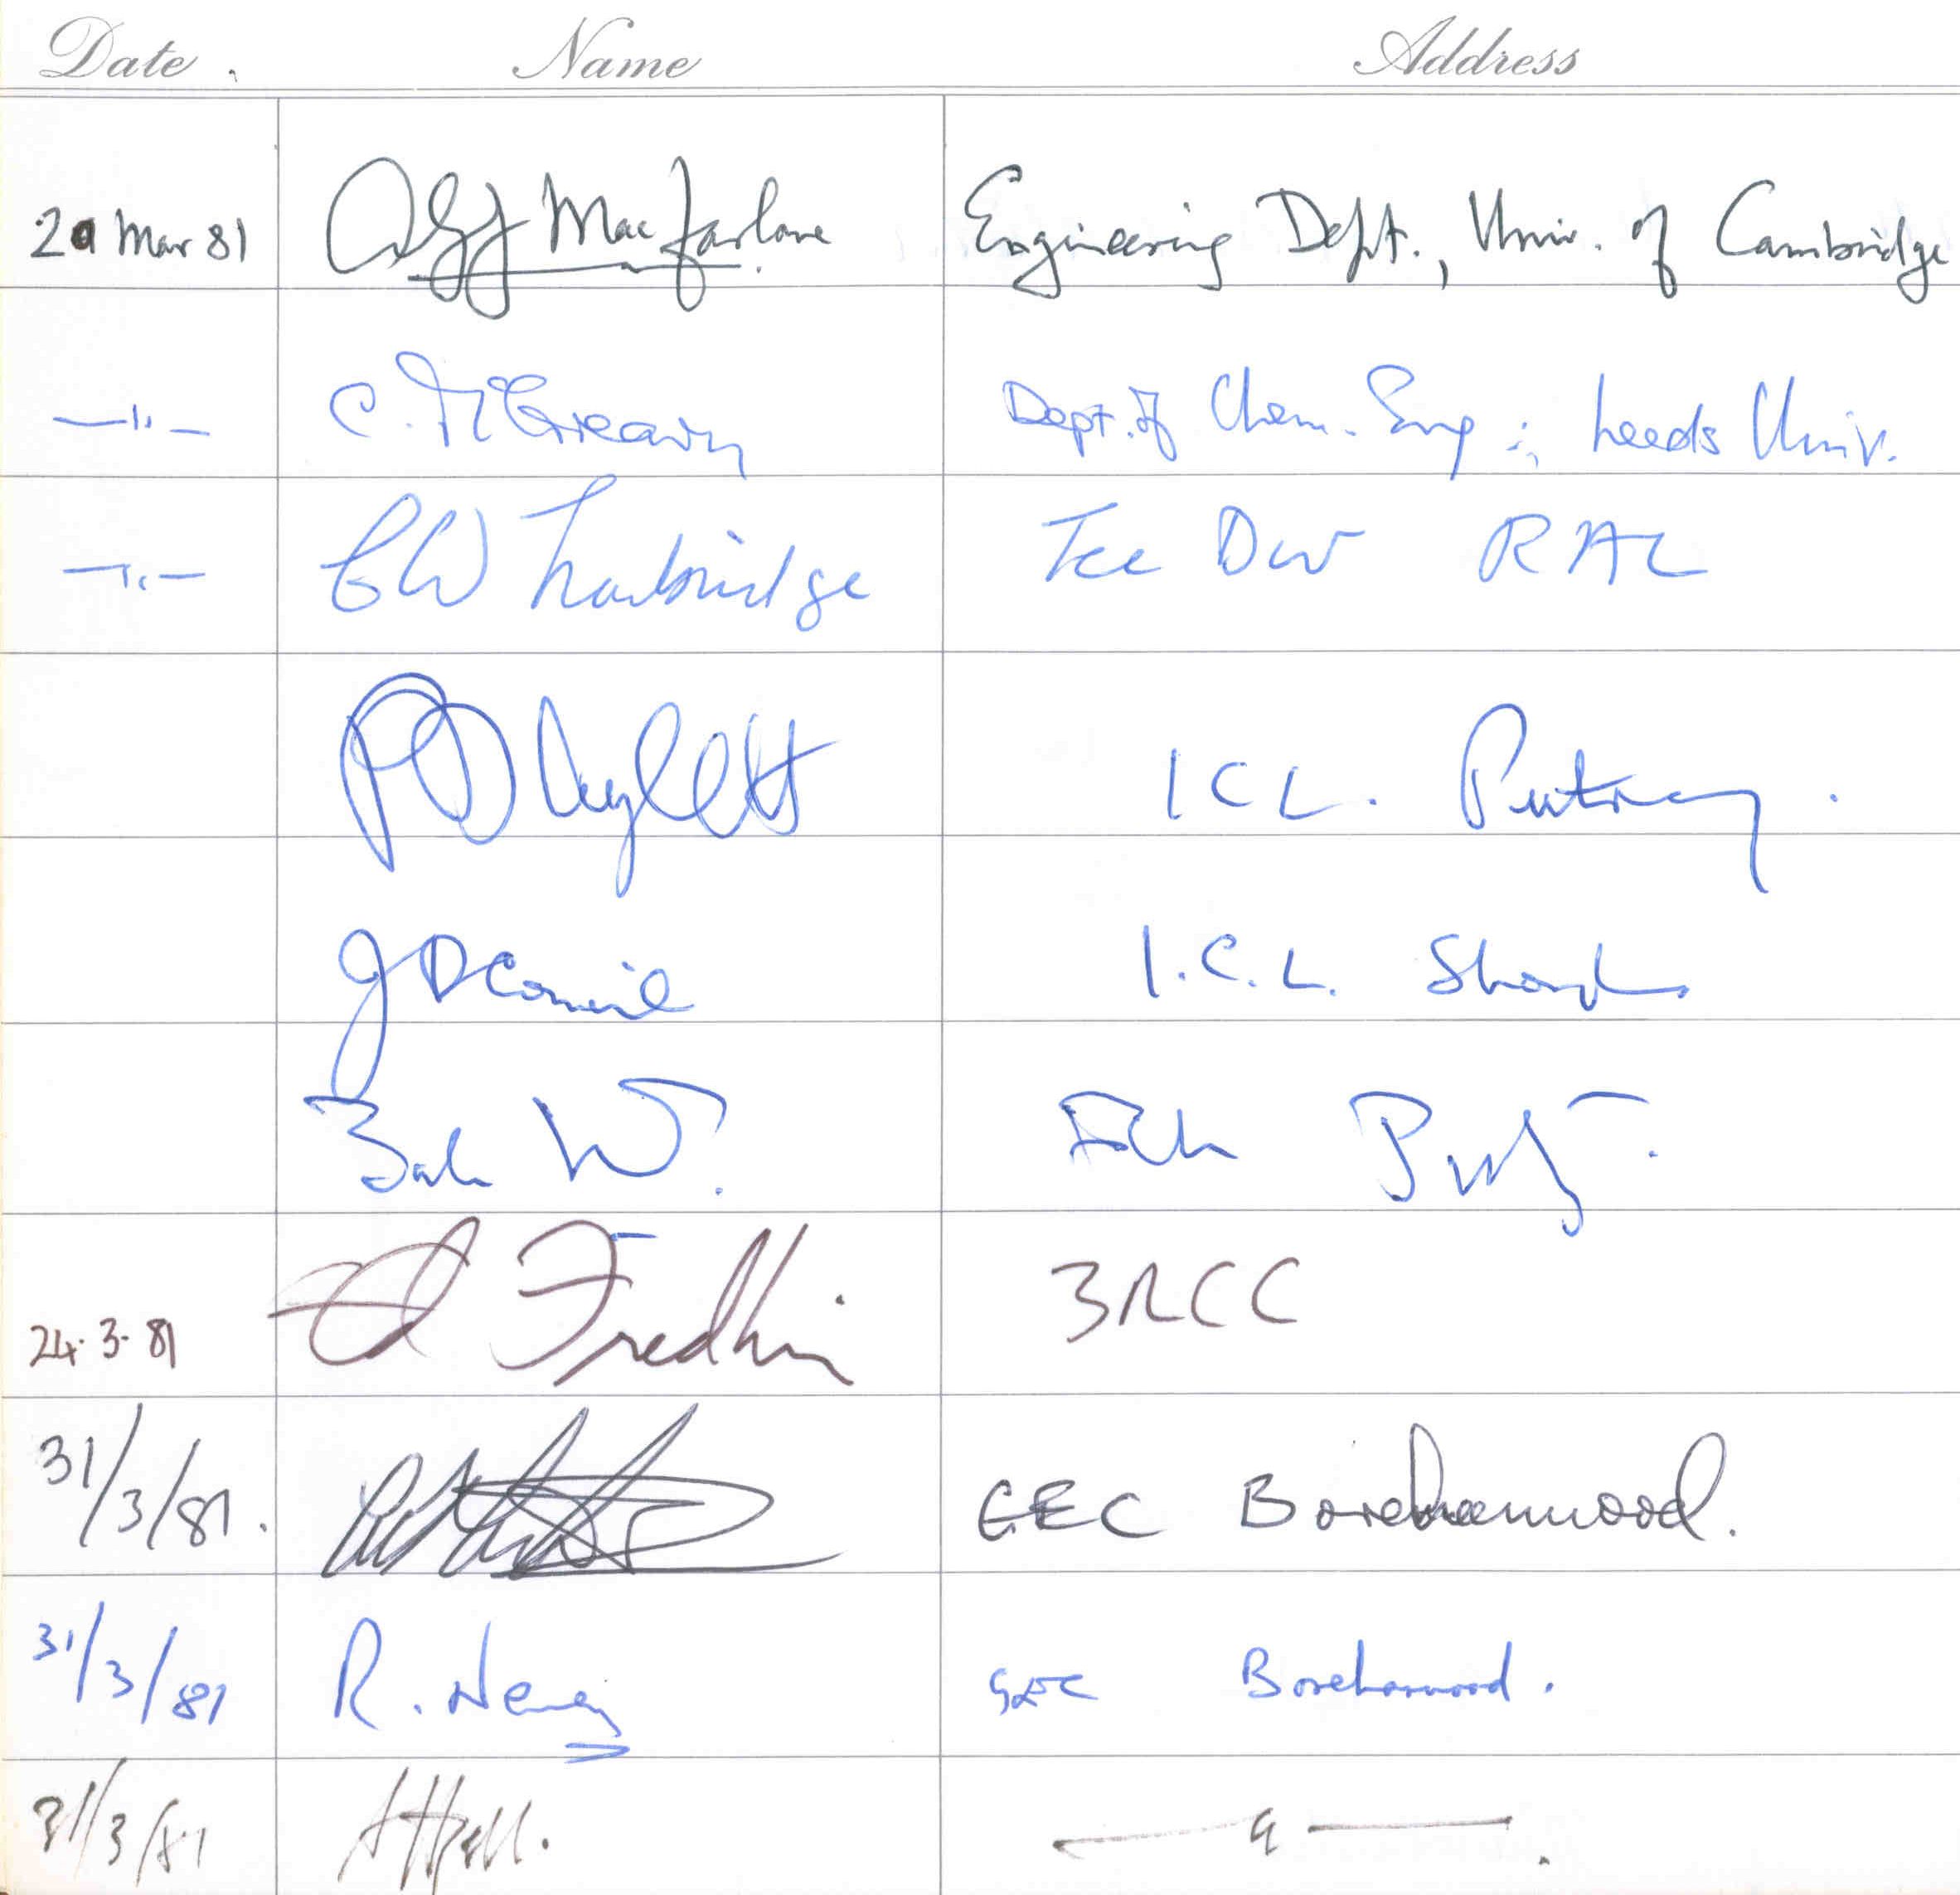 Date Name Address
20 Mar 81 AGJ MacFarlane Engineering Dept., Univ. of Cambridge
—"— C. McGreavy Dept. of Chem. Eng., Leeds Univ.
—"— CW Trowbridge Tec Div RAL
PD Aylett ICL. Putney.
J D I.C.L.
Bob
24.3.81 E Fredkin 3RCC
31/3/81. GEC Borehamwood.
31/3/81 R. GEC Borehamwood.
31/3/81 A Hall. —"—.